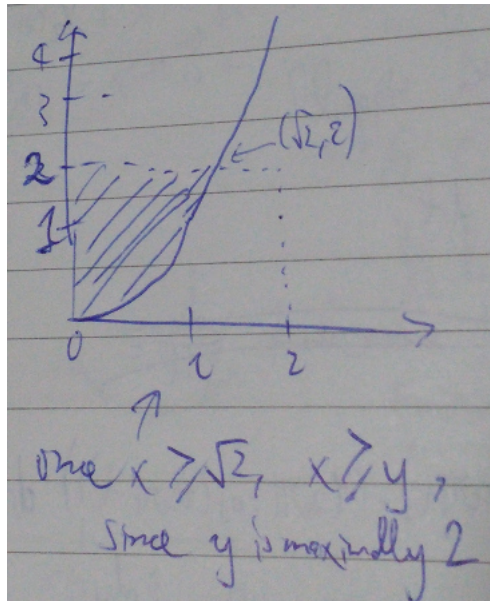 4
3
2
(√2, 2)
1
0 1 2
once x ≥ √2, x ≥ y,
since y is maximally 2